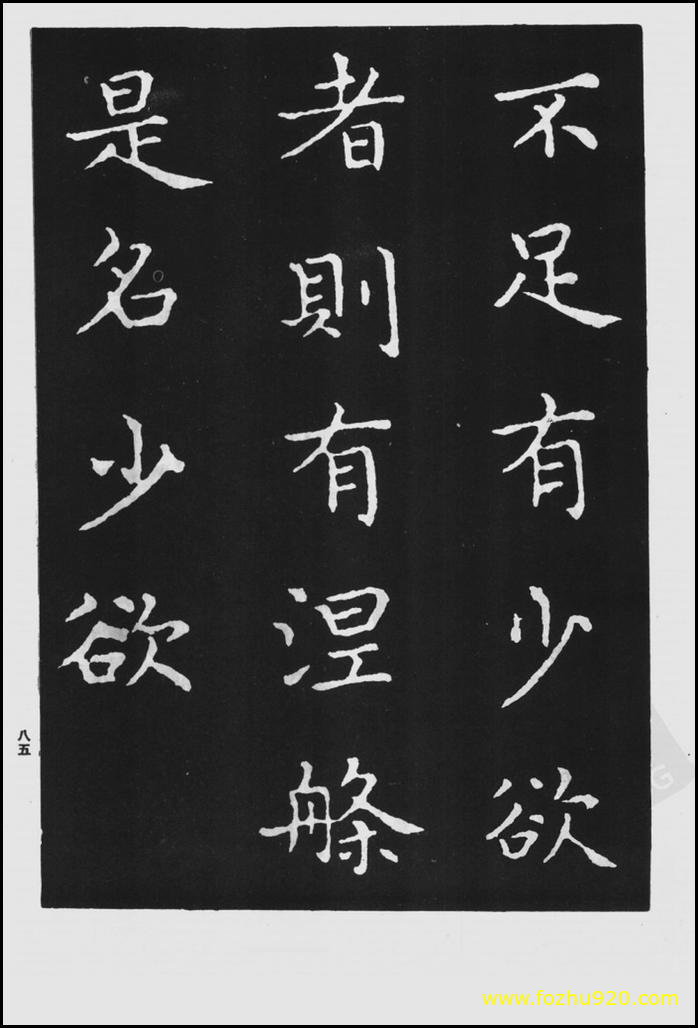 不足有少欲
者則有涅槃
是名少欲
八五
www.fozhu920.com